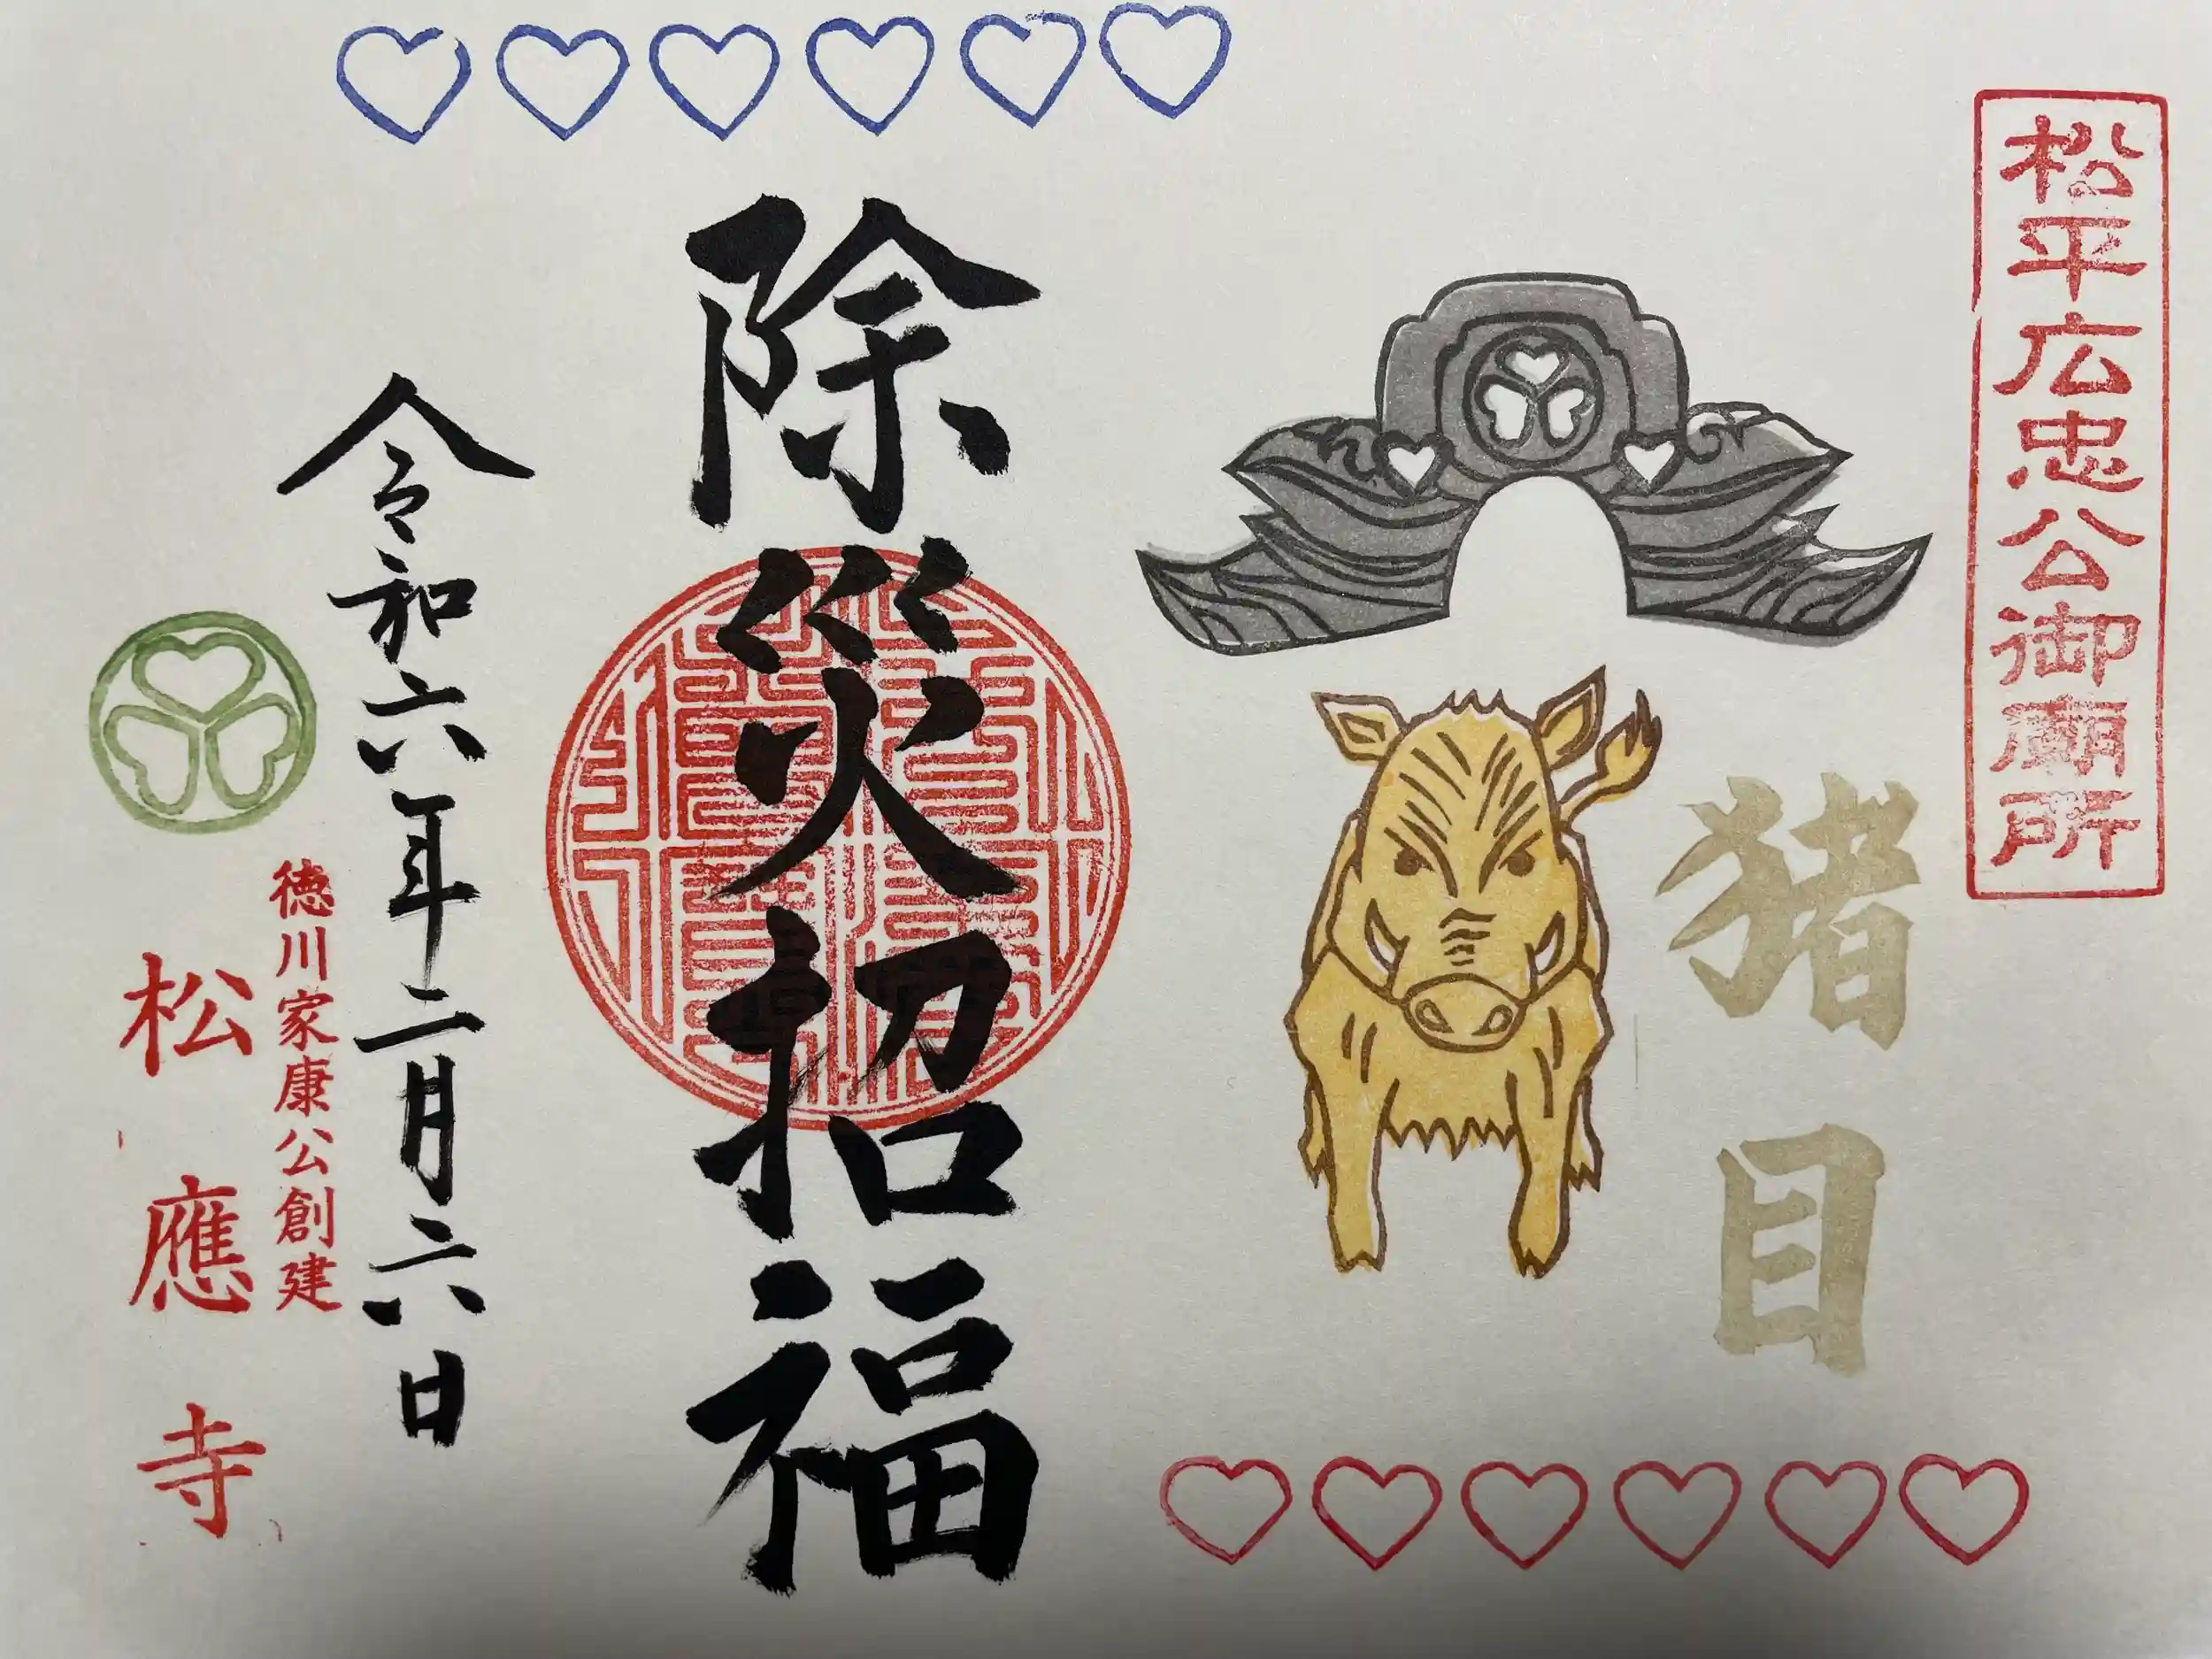 松平広忠公御廟所
猪目
除災招福
令和六年二月六日
徳川家康公創建
松應寺